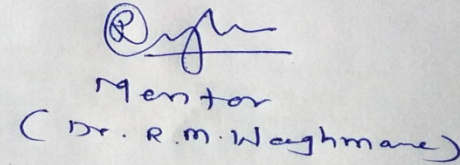 Mentor
(Dr. R.M. Waghmare)